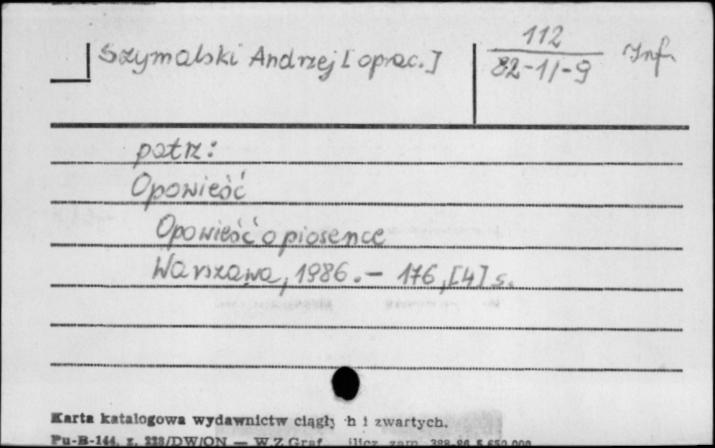 Szymalski Andrzej [oprac.]
112
82-1/-9
Inf.
patrz:
Opowieść
Opowieść o piosence
Warszawa, 1986. – 176, [4] s.
Karta katalogowa wydawnictw ciągły h i zwartych.
Pu-B-144, z. 223/DW/ON — W.Z.Graf. zam.